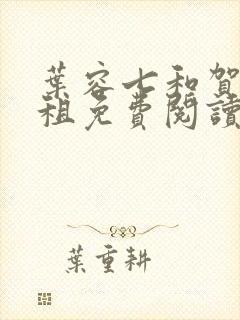 葉容七和賀
祖免費閱讀
葉重耕